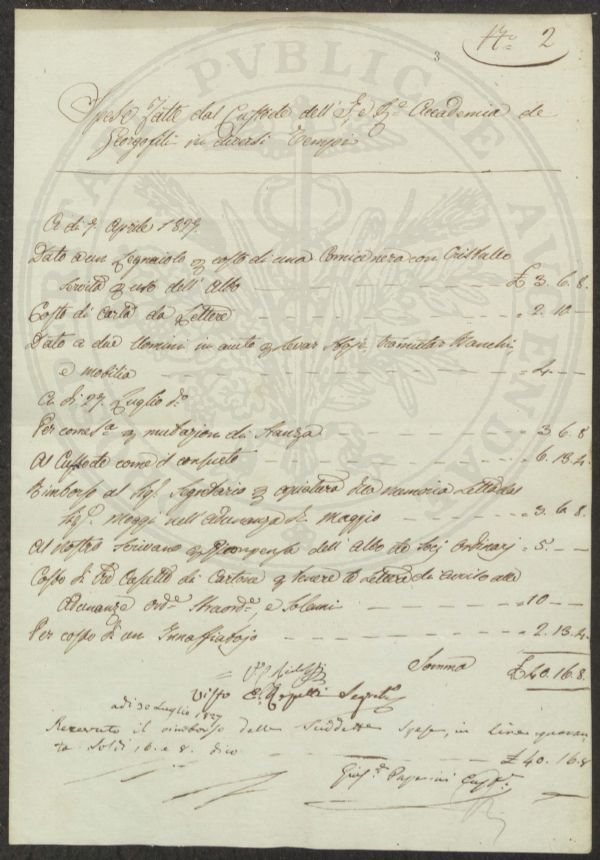 N.o 2
3
Spese Fatte dal Custode dell' I. e R.e Accademia de
Georgofili in diversi Tempi
A di 7. Aprile 1827.
Dato a un Legnaiolo p costo di una Cornice nera con Cristallo
servita p uso dell' Albo £ 3. 6. 8.
Costo di Carta da Lettere = 2. 10 —
Dato a due Uomini in aiuto p levar tramutar Banchi,
e mobilia = 4. — —
A di 27. Luglio d.o
Per p mutazion di Stanza 3. 6. 8
Al Custode come il consueto 6. 13. 4.
Rimborso al Sig.e Segretario p copiatura memoria Letta dal
Sig.e Moggi nell' Adunanza di Maggio = 3. 6. 8.
Al Nostro Scrivano p dell' Albo de Soci Ordinarj = 5. — —
Costo di Tre di Cartone p tenere le Lettere di avviso alle
Adunanze Ord.e Straord.e, e Solenni = 10 — —
Per costo di un Innaffiatojo = 2. 13. 4.
Somma £ 40. 16. 8.
Visto Segret.o
adi 30 Luglio 1827
Ricevuto il rimborso delle Suddette spese, in Lire quaran
ta Soldi 16. e 8. dico £ 40. 16. 8
Gius.e Paperini Cust.e
PVBLICAE